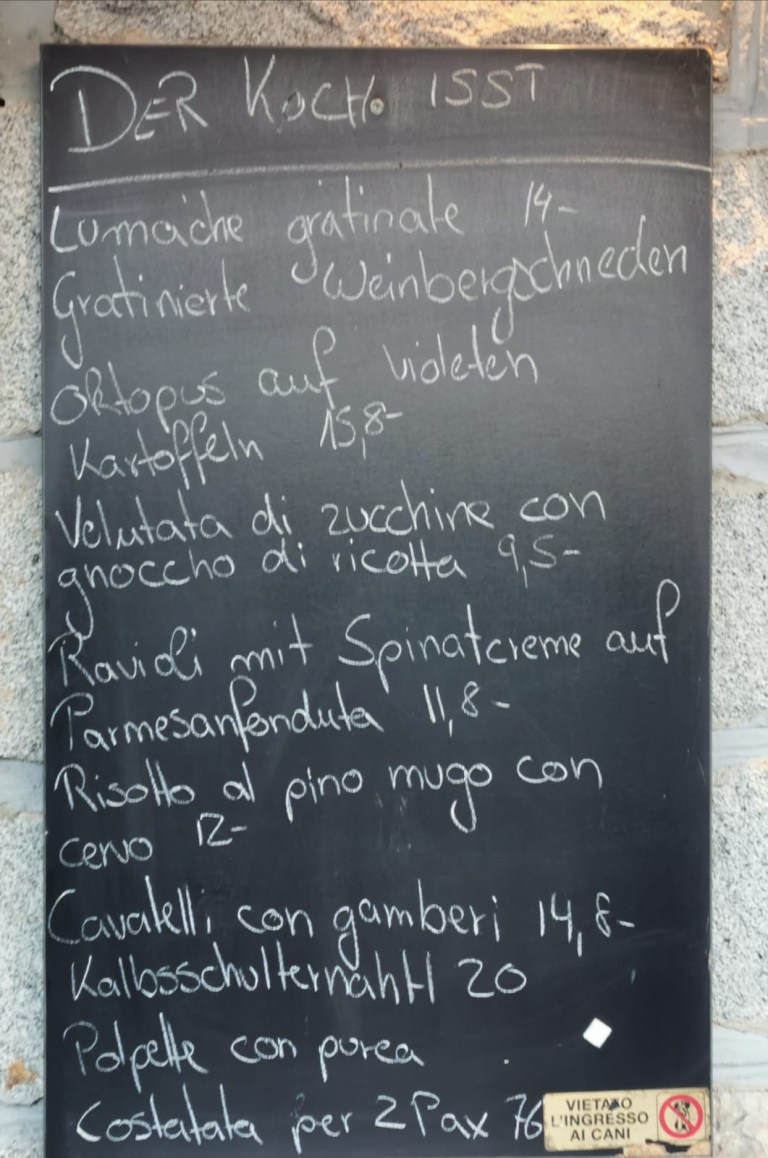 DER KOCH ISST
Lumache gratinate 14-
Gratinierte Weinbergschneden
Oktopus auf violeten
Kartoffeln 15,8-
Velutata di zucchine con
gnoccho di ricotta 9,5-
Ravioli mit Spinatcreme auf
Parmesanfonduta 11,8-
Risotto al pino mugo con
cervo 12-
Cavatelli con gamberi 14,8-
Kalbsschulternahtl 20
Polpette con purea
Costatata per 2 Pax 76
VIETATO
L'INGRESSO
AI CANI